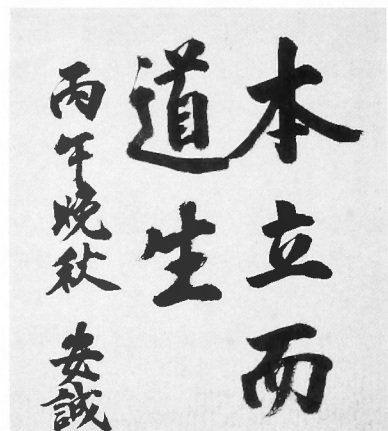 本立而
道生
丙午晚秋 安誠